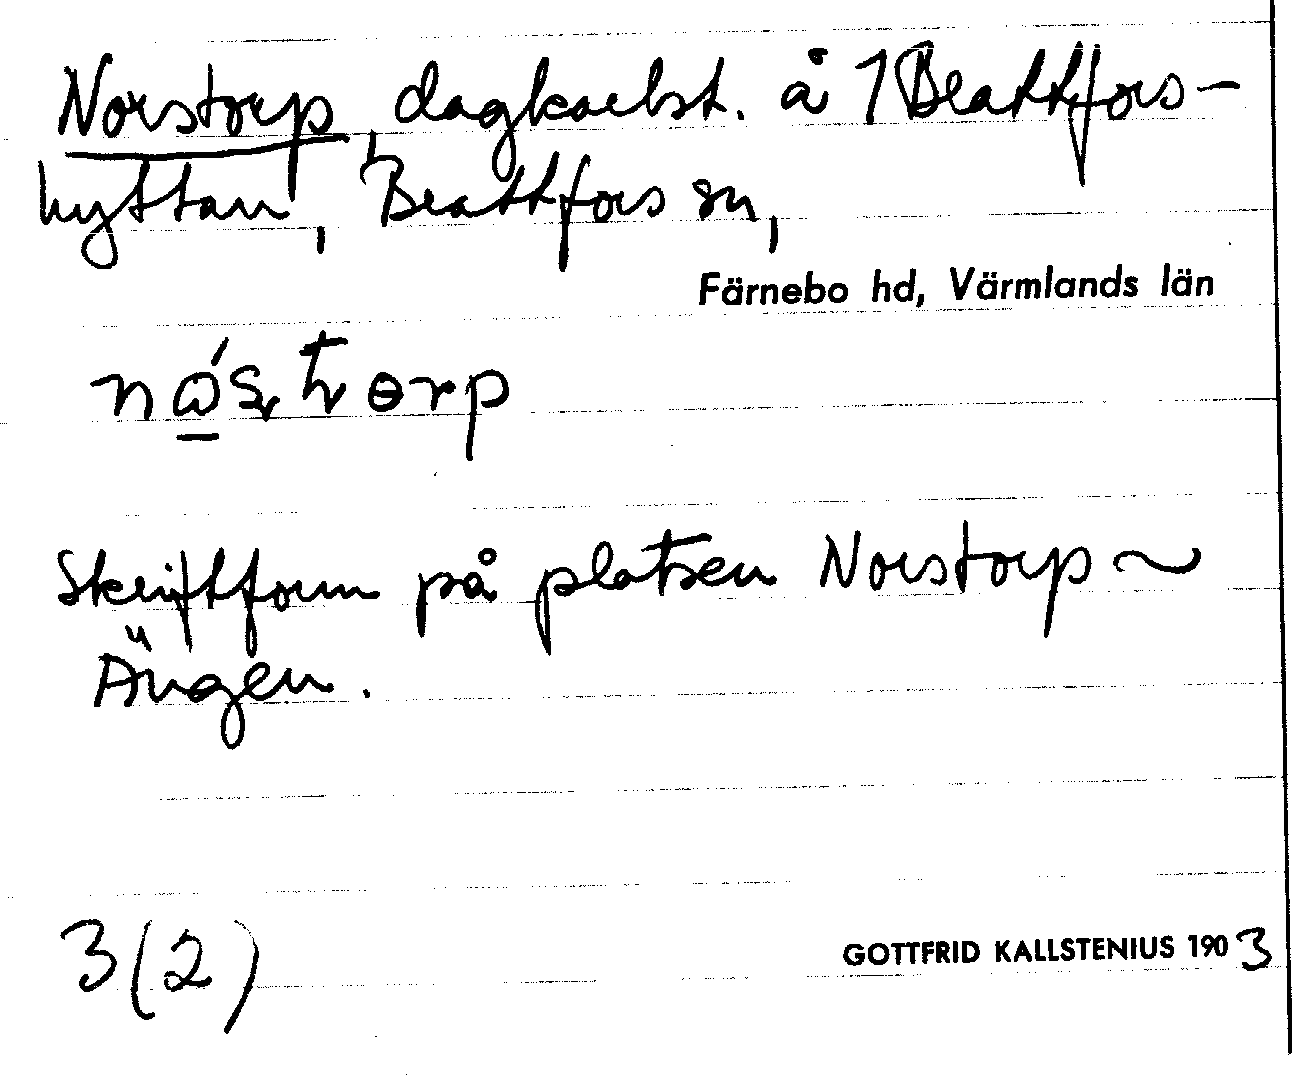 Norstorp, dagkarlst. å 1 Brattfors-
hyttan, Brattfors sn,
Färnebo hd, Värmlands län
Skriftform på platsen Norstorp ~
Ängen.
3(2)
GOTTFRID KALLSTENIUS 1903